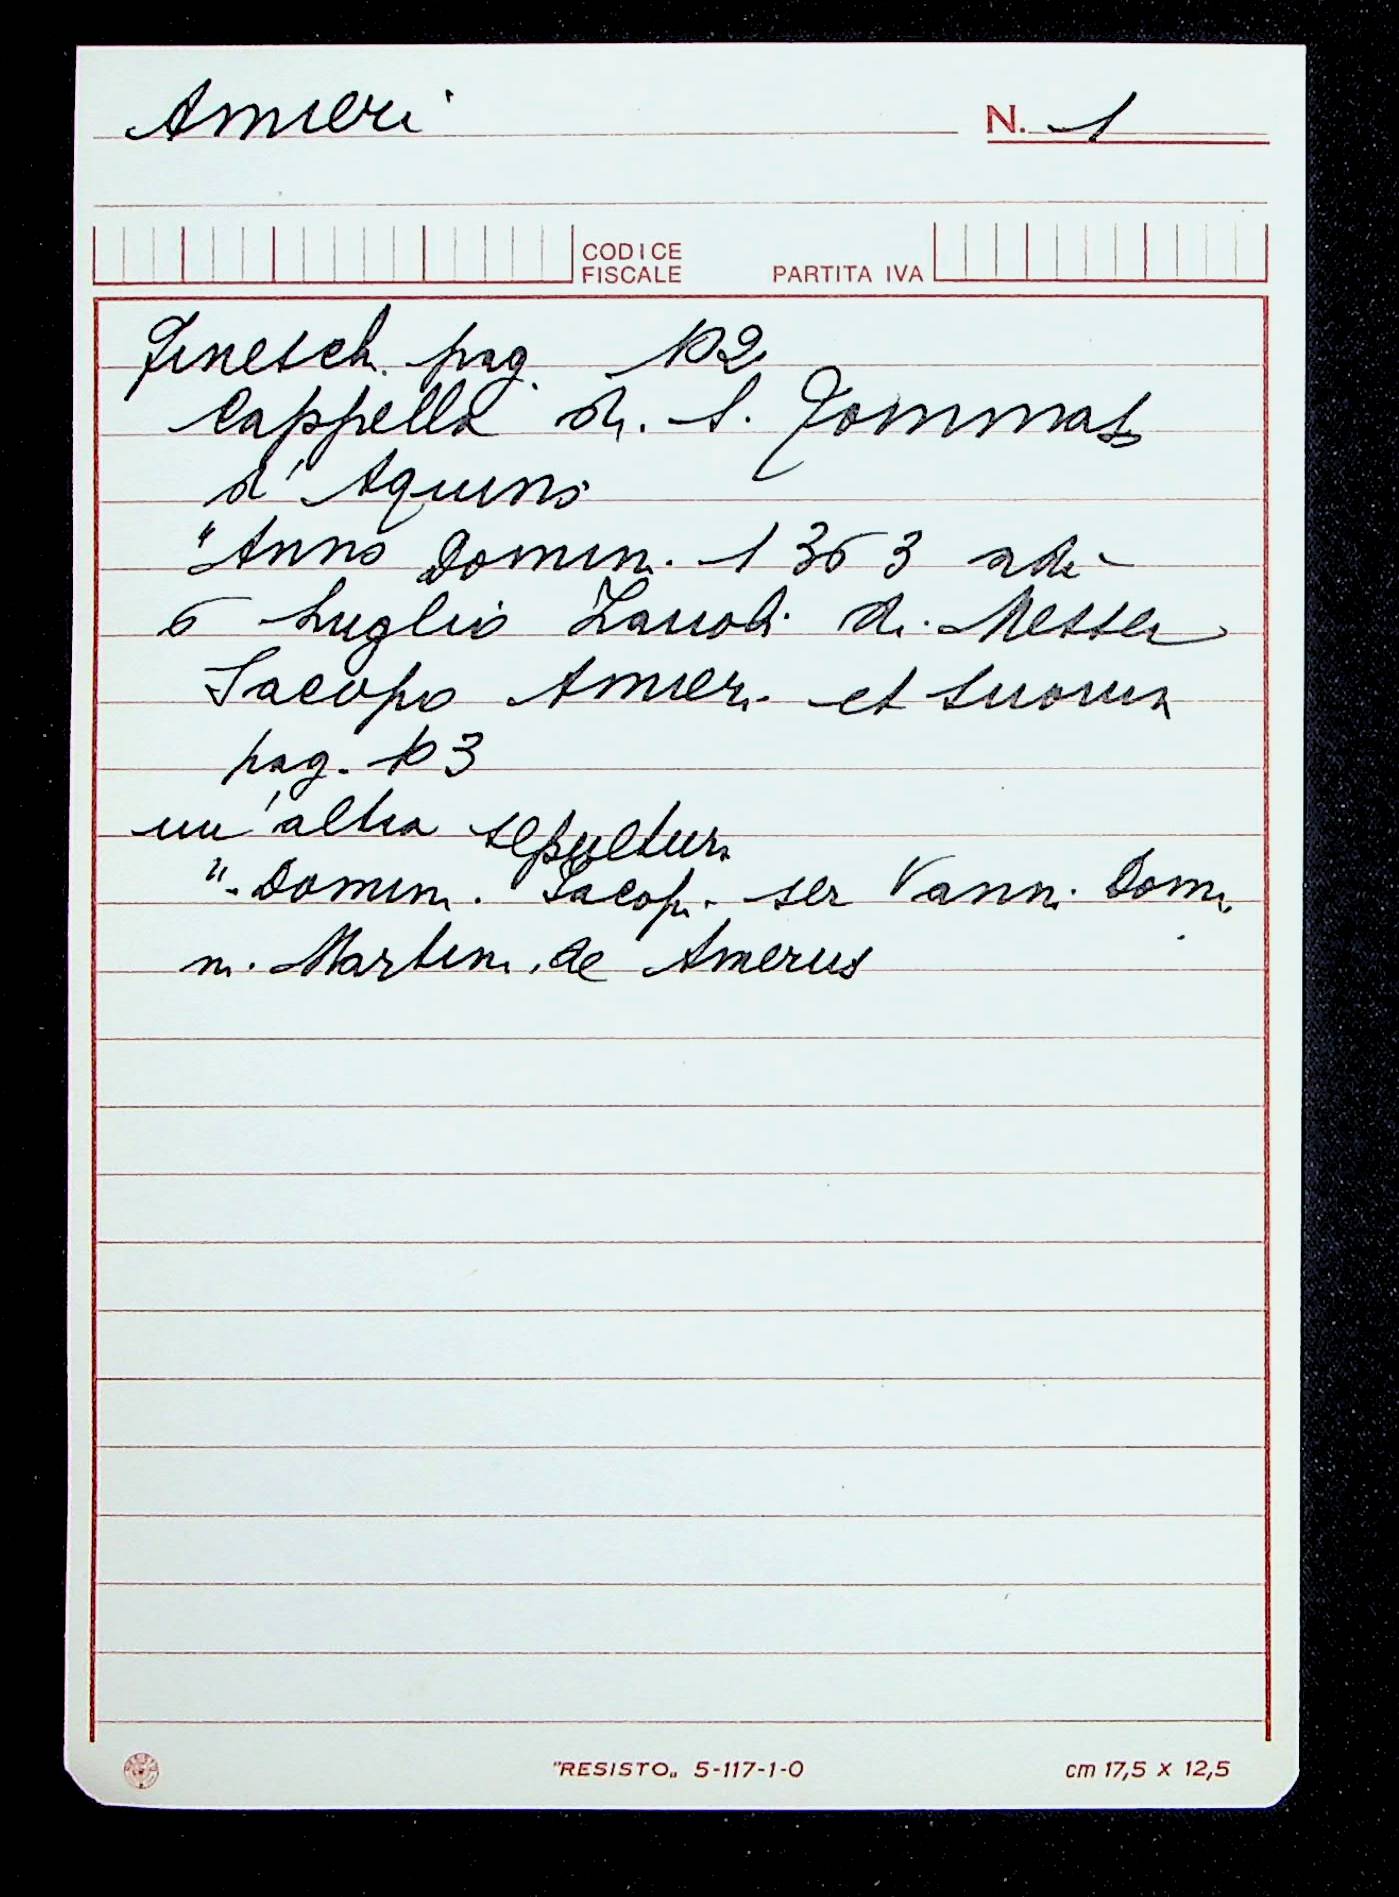 Amieri N. 1
CODICE
FISCALE PARTITA IVA
Fineschi pag. 102
Cappella di S. Tommaso
d'Aquino
"Anno Domini 1363 adi
6 Luglio Zanobi di Messer
Iacopo Amieri et suorum
pag. 103
un'altra sepultura
"Domini Iacopi ser Vanni Domi
ni Martini de Amerus
"RESISTO„ 5-117-1-0 cm 17,5 x 12,5